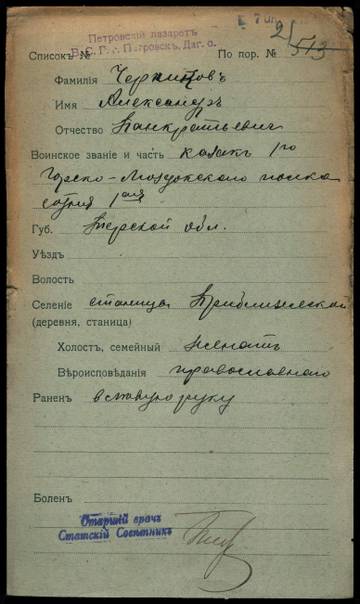 Петровскій лазаретъ
В. С. Г. г. Петровскъ, Даг. о.
Списокъ № По пор. № 513
Фамилія
Имя Александръ
Отчество Панкратьевич
Воинское званіе и часть казакъ 1го
Горско-Моздокского полка
сотня 1ая
Губ. Терской обл.
Уѣздъ
Волость
Селеніе станица Приближской
(деревня, станица)
Холостъ, семейный женатъ
Вѣроисповѣданія православнаго
Раненъ в лѣвую руку
Боленъ
Старшій врачъ
Статскій Совѣтникъ